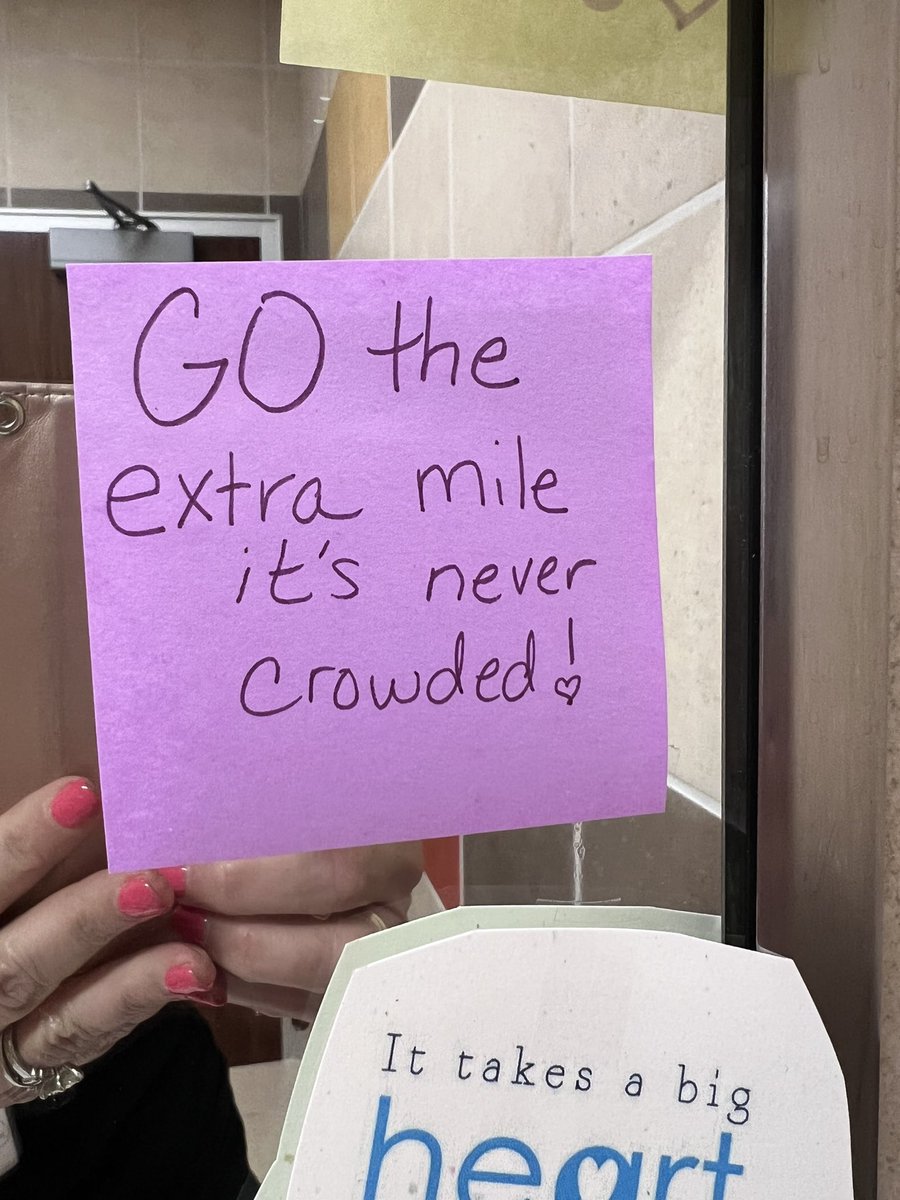 GO the
extra mile
it's never
crowded!
It takes a big
heart